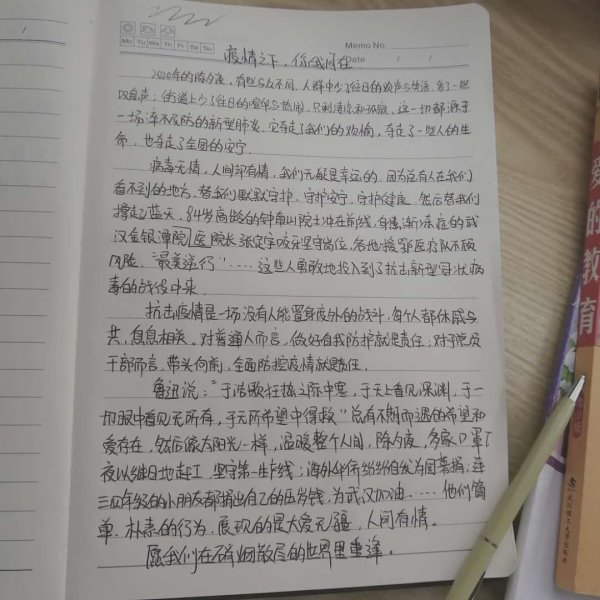 Memo No.
Mo Tu We Th Fr Sa Su
Date / /
疫情之下，你我同在
2020年的除夕夜，有些与众不同，人群中少了往日的欢声与笑语，多了一些
叹息声；街道上少了往日的喧闹与热闹，只剩凄凉和孤寂。这一切都源于
一场猝不及防的新型肺炎。它夺走了我们的欢愉，夺走了一些人的生
命，也夺走了全国的安宁。
病毒无情，人间却有情，我们无疑是幸运的。因为总有人在我们
看不到的地方，替我们默默守护，守护安宁，守护健康，然后替我们
撑起蓝天，84岁高龄的钟南山院士冲在前线，身患渐冻症的武
汉金银潭院医院长张定宇咬牙坚守岗位，各地接鄂医疗队不顾
风险，"最美逆行"……这些人勇敢地投入到了抗击新型冠状病
毒的战役中来。
抗击疫情是一场没有人能置身度外的战斗，每个人都休戚与
共，息息相关。对普通人而言，做好自我防护就是责任；对于党员
干部而言，带头向前，全面防控疫情就是责任。
鲁迅说："于浩歌狂热之际中寒，于天上看见深渊，于一
切眼中看见无所有，于无所希望中得救"总有不期而遇的希望和
爱存在，然后像太阳光一样，温暖整个人间，除夕夜，多家口罩厂
夜以继日地赶工，坚守第一生产线；海外华侨纷纷自发为国募捐；连
三四年级的小朋友都捐出自己的压岁钱，为武汉加油……他们简
单、朴素的行为，展现的是大爱无疆，人间有情。
愿我们在硝烟散尽的世界里重逢。
爱的教育
武汉理工大学出版社